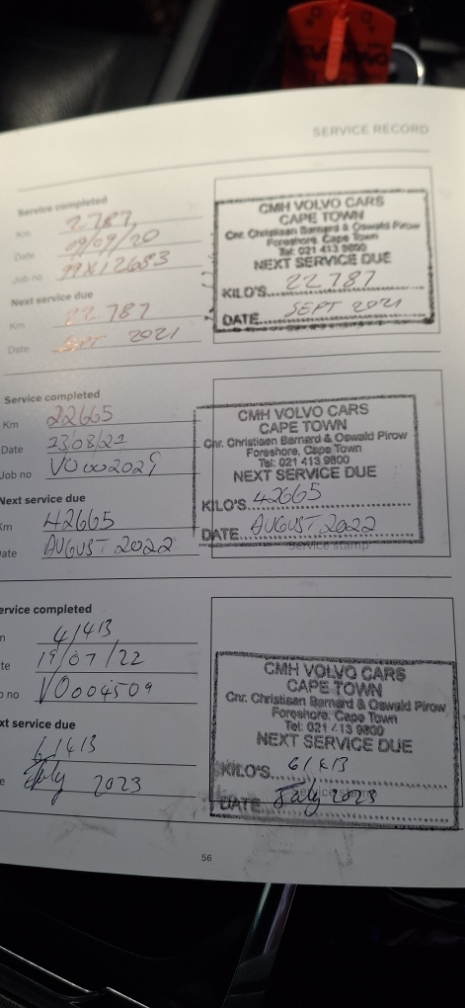 SERVICE RECORD
Service completed
Km 2787
Date 09/09/20
Job no 99X12683
Next service due
Km 22787
Date SEPT 2021
CMH VOLVO CARS
CAPE TOWN
Cnr. Christiaan Barnard & Oswald Pirow
Foreshore, Cape Town
Tel: 021 413 9800
NEXT SERVICE DUE
KILO'S 22787
DATE SEPT 2021
Service completed
Km 22665
Date 23/08/21
Job no VO002029
Next service due
Km 42665
ate AUGUST 2022
CMH VOLVO CARS
CAPE TOWN
Cnr. Christiaan Barnard & Oswald Pirow
Foreshore, Cape Town
Tel: 021 413 9800
NEXT SERVICE DUE
KILO'S 42665
DATE AUGUST 2022
Service stamp
ervice completed
n 41413
te 19/07/22
o no VO004509
xt service due
61413
e July 2023
CMH VOLVO CARS
CAPE TOWN
Cnr. Christiaan Barnard & Oswald Pirow
Foreshore, Cape Town
Tel: 021 413 9800
NEXT SERVICE DUE
KILO'S 61413
DATE July 2023
56